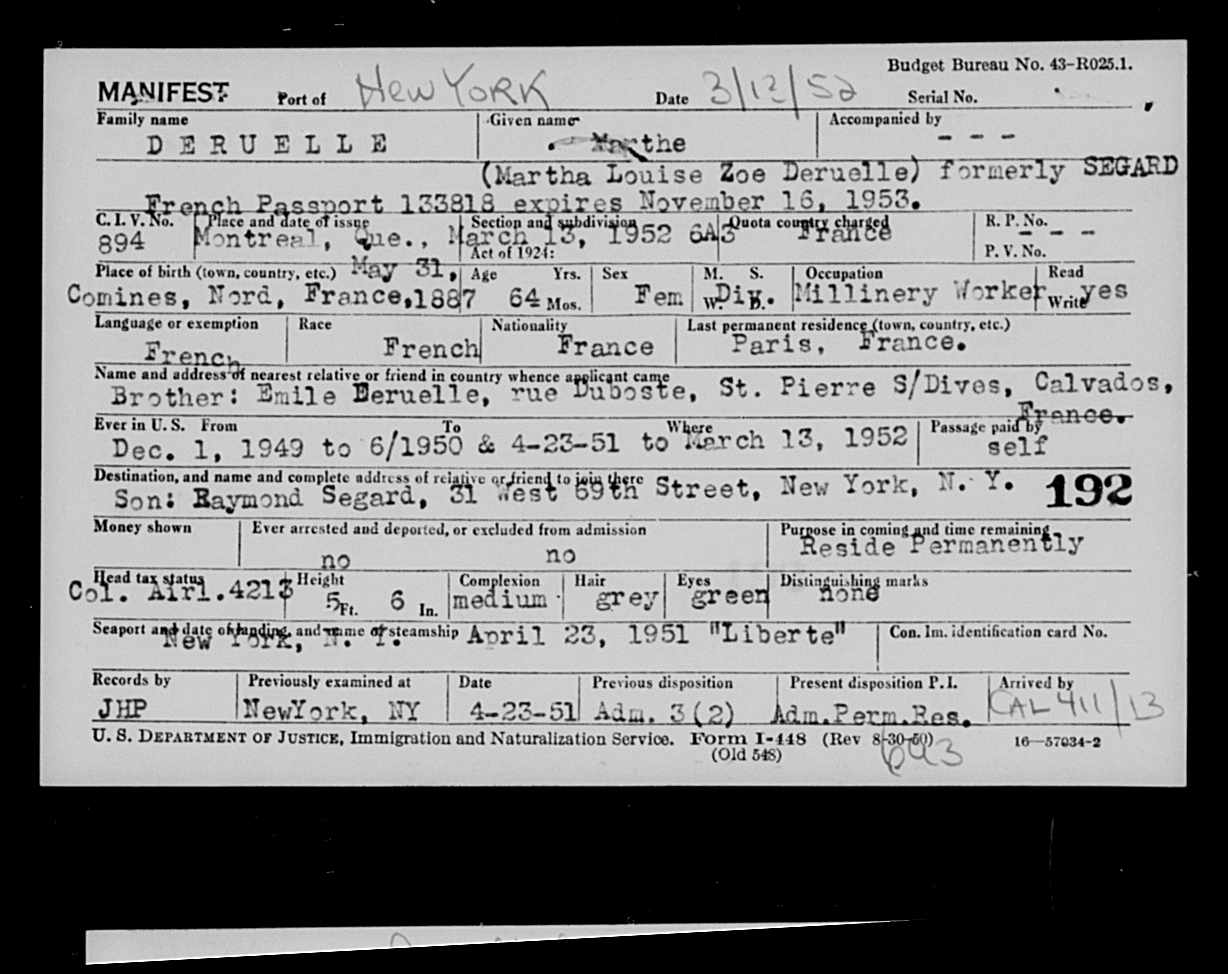 Budget Bureau No. 43-R025.1.
MANIFEST Port of New York Date 3/13/52 Serial No.
Family name Given name Accompanied by
DERUELLE Marthe - - -
(Martha Louise Zoe Deruelle) formerly SEGARD
French Passport 133818 expires November 16, 1953.
C. I. V. No. Place and date of issue Section and subdivision Quota country charged R. P. No.
894 Montreal, Que., March 13, 1952 6A3 France - - -
Act of 1924: P. V. No.
Place of birth (town, country, etc.) May 31, Age Yrs. Sex M. S. Occupation Read
Comines, Nord, France, 1887 64 Mos. Fem W. Div. D. Millinery Worker Write yes
Language or exemption Race Nationality Last permanent residence (town, country, etc.)
French French France Paris, France.
Name and address of nearest relative or friend in country whence applicant came
Brother: Emile Deruelle, rue Duboste, St. Pierre S/Dives, Calvados,
France.
Ever in U. S. From To Where Passage paid by
Dec. 1, 1949 to 6/1950 & 4-23-51 to March 13, 1952 self
Destination, and name and complete address of relative or friend to join there
Son: Raymond Segard, 31 West 69th Street, New York, N. Y. 192
Money shown Ever arrested and deported, or excluded from admission Purpose in coming and time remaining
no no Reside Permanently
Head tax status Height Complexion Hair Eyes Distinguishing marks
Col. Airl.4213 5 Ft. 6 In. medium grey green none
Seaport and date of landing, and name of steamship Con. Im. identification card No.
New York, N. Y. April 23, 1951 "Liberte"
Records by Previously examined at Date Previous disposition Present disposition P. I. Arrived by
JHP NewYork, NY 4-23-51 Adm. 3(2) Adm.Perm.Res. CAL 411/13
U. S. DEPARTMENT OF JUSTICE, Immigration and Naturalization Service. Form I-448 (Rev 8-30-50) 16—57034-2
(Old 548) 643